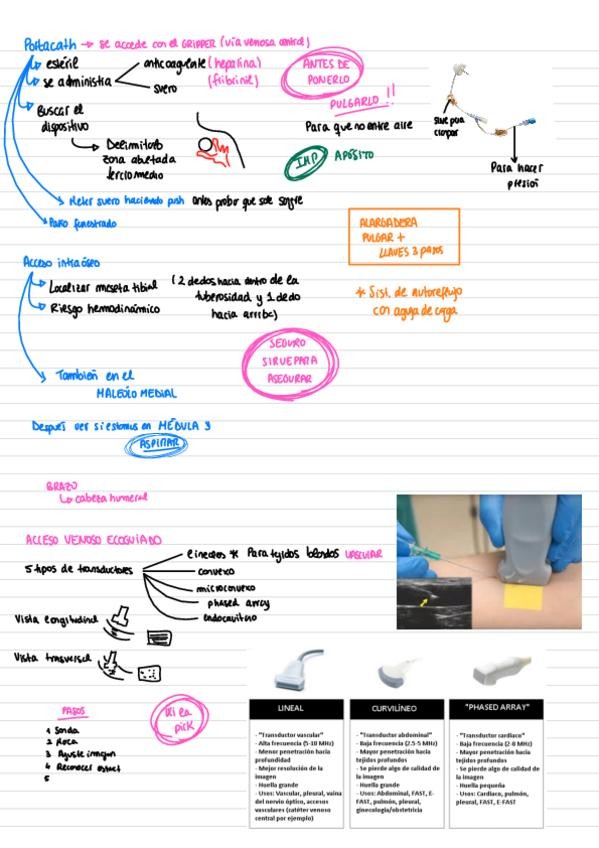 Portacath → se accede con el GRIPPER (vía venosa central)
estéril
se administra
anticoagulante (heparina)
(fibrinil)
suero
ANTES DE
PONERLO
PULGARLO !!
Para que no entre aire
Buscar el
dispositivo
Delimitarlo
zona abultada
tercio medio
IMP
APÓSITO
Sirve para
clampar
Para hacer
presión
Meter suero haciendo push antes probar que sale sangre
Paño fenestrado
ALARGADERA
PULGAR +
LLAVES 3 pasos
Acceso intraóseo
Localizar meseta tibial
(2 dedos hacia dentro de la
tuberosidad y 1 dedo
hacia arriba)
Riesgo hemodinámico
* Sist. de autoreflujo
con aguja de carga
SEGURO
SIRVE PARA
ASEGURAR
También en el
MALEOLO MEDIAL
Después ver si estamos en MÉDULA 3
ASPIRAR
BRAZO
↳ cabeza humeral
ACCESO VENOSO ECOGUIADO
5 tipos de transductores
lineales * Para tejidos blandos VASCULAR
convexo
microconvexo
phased array
endocavitario
Vista longitudinal
Vista transversal
PASOS
1 Sonda
2 Roca
3 Ajuste imagen
4 Reconocer estruct
5
pick
LINEAL
- "Transductor vascular"
- Alta frecuencia (5-10 MHz)
- Menor penetración hacia
profundidad
- Mejor resolución de la
imagen
- Huella grande
- Usos: Vascular, pleural, vaina
del nervio óptico, accesos
vasculares (catéter venoso
central por ejemplo)
CURVILÍNEO
- "Transductor abdominal"
- Baja frecuencia (2.5-5 MHz)
- Mayor penetración hacia
tejidos profundos
- Se pierde algo de calidad de
la imagen
- Huella grande
- Usos: Abdominal, FAST, E-
FAST, pulmón, pleural,
ginecología/obstetricia
"PHASED ARRAY"
- "Transductor cardiaco"
- Baja frecuencia (2-8 MHz)
- Mayor penetración hacia
tejidos profundos
- Se pierde algo de calidad de
la imagen
- Huella pequeña
- Usos: Cardiaco, pulmón,
pleural, FAST, E-FAST